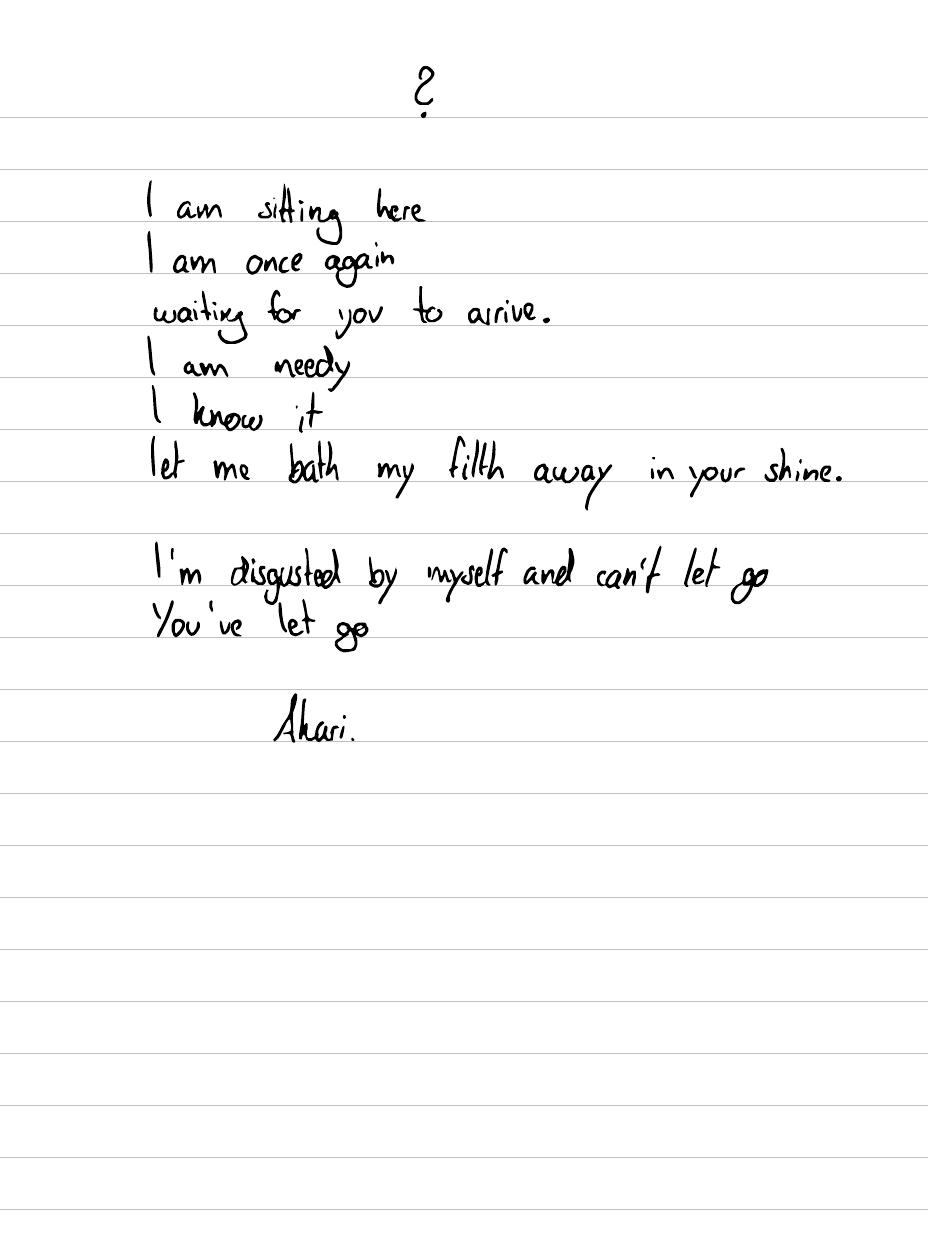 ?
I am sitting here
I am once again
waiting for you to arrive.
I am needy
I know it
let me bath my filth away in your shine.
I'm disgusted by myself and can't let go
You've let go
Akari.